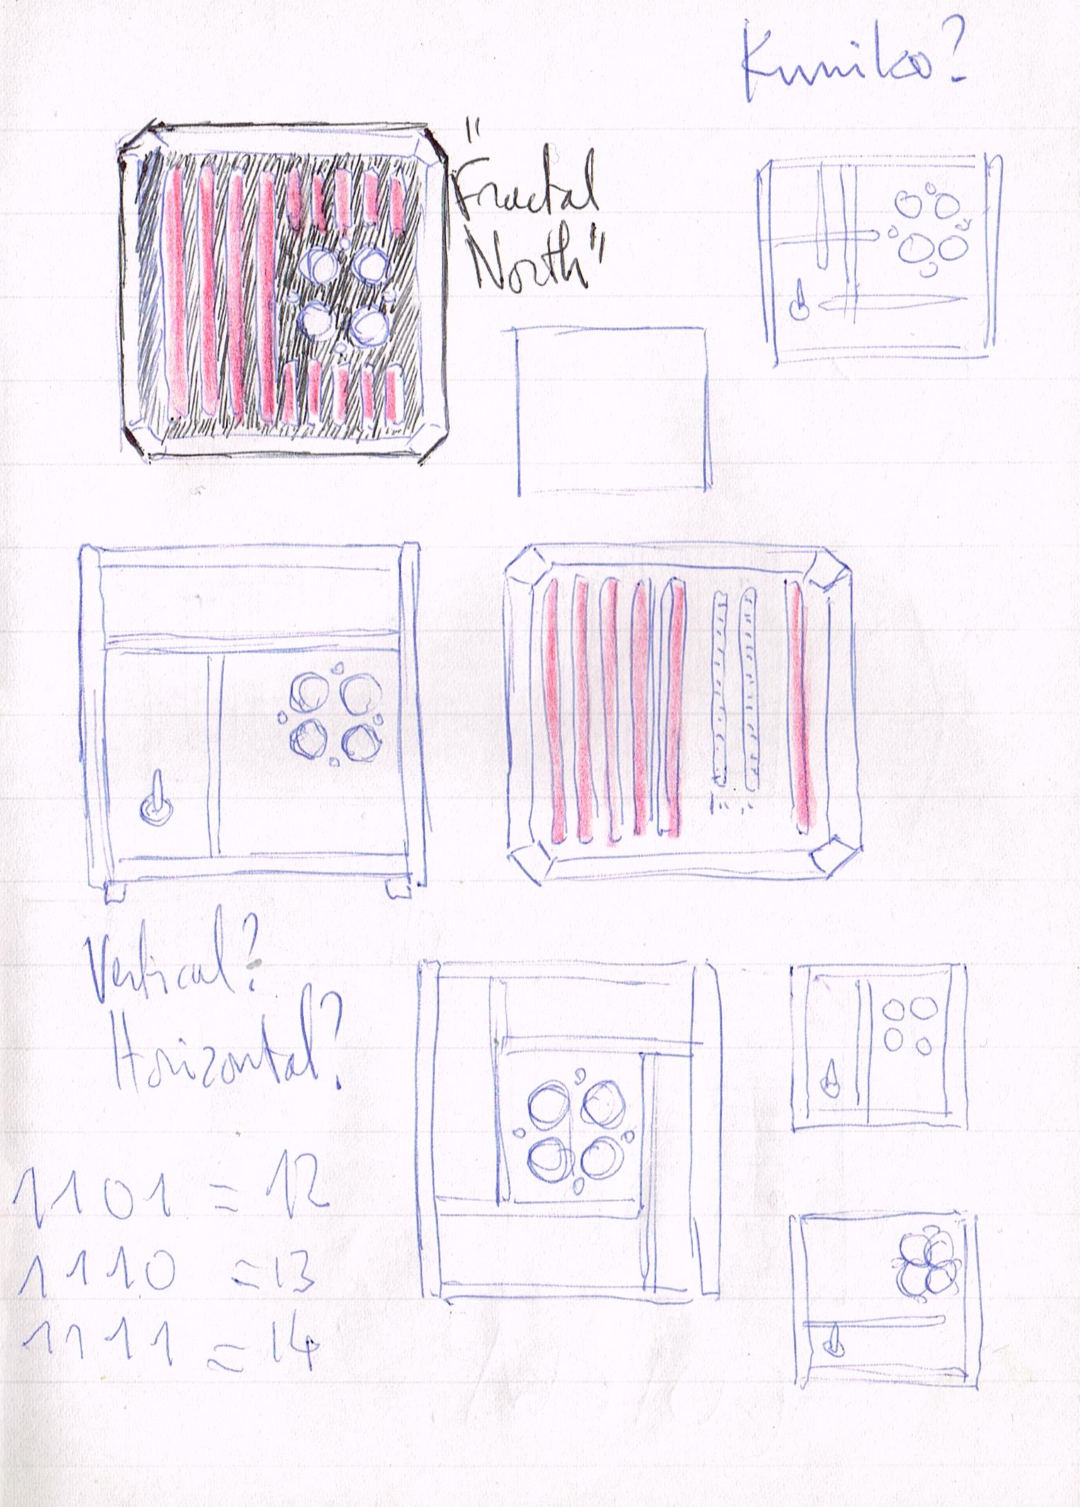 Kumiko?
"
Fractal
North"
Vertical?
Horizontal?
1101 = 12
1110 = 13
1111 = 14